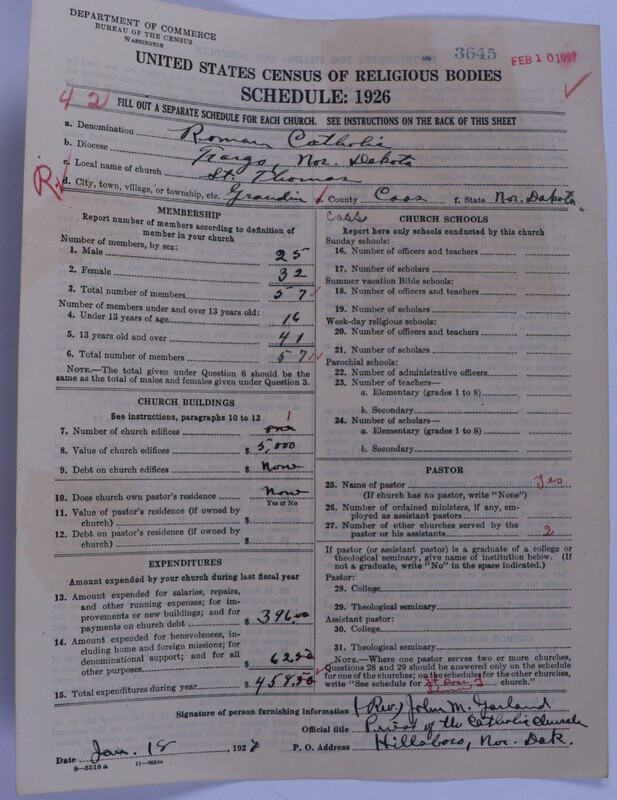 DEPARTMENT OF COMMERCE
BUREAU OF THE CENSUS
WASHINGTON
3645
FEB 10 1927
UNITED STATES CENSUS OF RELIGIOUS BODIES
SCHEDULE: 1926
42
FILL OUT A SEPARATE SCHEDULE FOR EACH CHURCH. SEE INSTRUCTIONS ON THE BACK OF THIS SHEET
a. Denomination Roman Catholic
b. Diocese Fargo, Nor. Dakota
c. Local name of church St. Thomas
R
d. City, town, village, or township, etc. Grandin County Cass f. State Nor. Dakota
Cass
MEMBERSHIP
Report number of members according to definition of
member in your church
Number of members, by sex:
1. Male 25
2. Female 32
3. Total number of members 57
Number of members under and over 13 years old:
4. Under 13 years of age 16
5. 13 years old and over 41
6. Total number of members 57
NOTE.—The total given under Question 6 should be the
same as the total of males and females given under Question 3.
CHURCH BUILDINGS
See instructions, paragraphs 10 to 12
1
7. Number of church edifices one
8. Value of church edifices $ 5,000
9. Debt on church edifices $ None
10. Does church own pastor's residence None
Yes or No
11. Value of pastor's residence (if owned by
church) $
12. Debt on pastor's residence (if owned by
church) $
EXPENDITURES
Amount expended by church during last fiscal year
13. Amount expended for salaries, repairs,
and other running expenses; for im-
provements or new buildings; and for
payments on church debt $ 396.00
14. Amount expended for benevolences, in-
cluding home and foreign missions; for
denominational support; and for all
other purposes $ 62.50
15. Total expenditures during year $ 458.50
CHURCH SCHOOLS
Report here only schools conducted by this church
Sunday schools:
16. Number of officers and teachers
17. Number of scholars
Summer vacation Bible schools:
18. Number of officers and teachers
19. Number of scholars
Week-day religious schools:
20. Number of officers and teachers
21. Number of scholars
Parochial schools:
22. Number of administrative officers
23. Number of teachers—
a. Elementary (grades 1 to 8)
b. Secondary
24. Number of scholars—
a. Elementary (grades 1 to 8)
b. Secondary
PASTOR
25. Name of pastor Yes
(If church has no pastor, write "None")
26. Number of ordained ministers, if any, em-
ployed as assistant pastors
27. Number of other churches served by the
pastor or his assistants 2
If pastor (or assistant pastor) is a graduate of a college or
theological seminary, give name of institution below. (If
not a graduate, write "No" in the space indicated.)
Pastor:
28. College
29. Theological seminary
Assistant pastor:
30. College
31. Theological seminary
NOTE.—Where one pastor serves two or more churches,
Questions 28 and 29 should be answered only on the schedule
for one of the churches; on the schedules for the other churches,
write "See schedule for St. Rose of church."
Signature of person furnishing information (Rev.) John M. Garland
Official title Priest of the Catholic Church
Date Jan. 18, 1927 P. O. Address Hillsboro, Nor. Dak.
8—5518 a